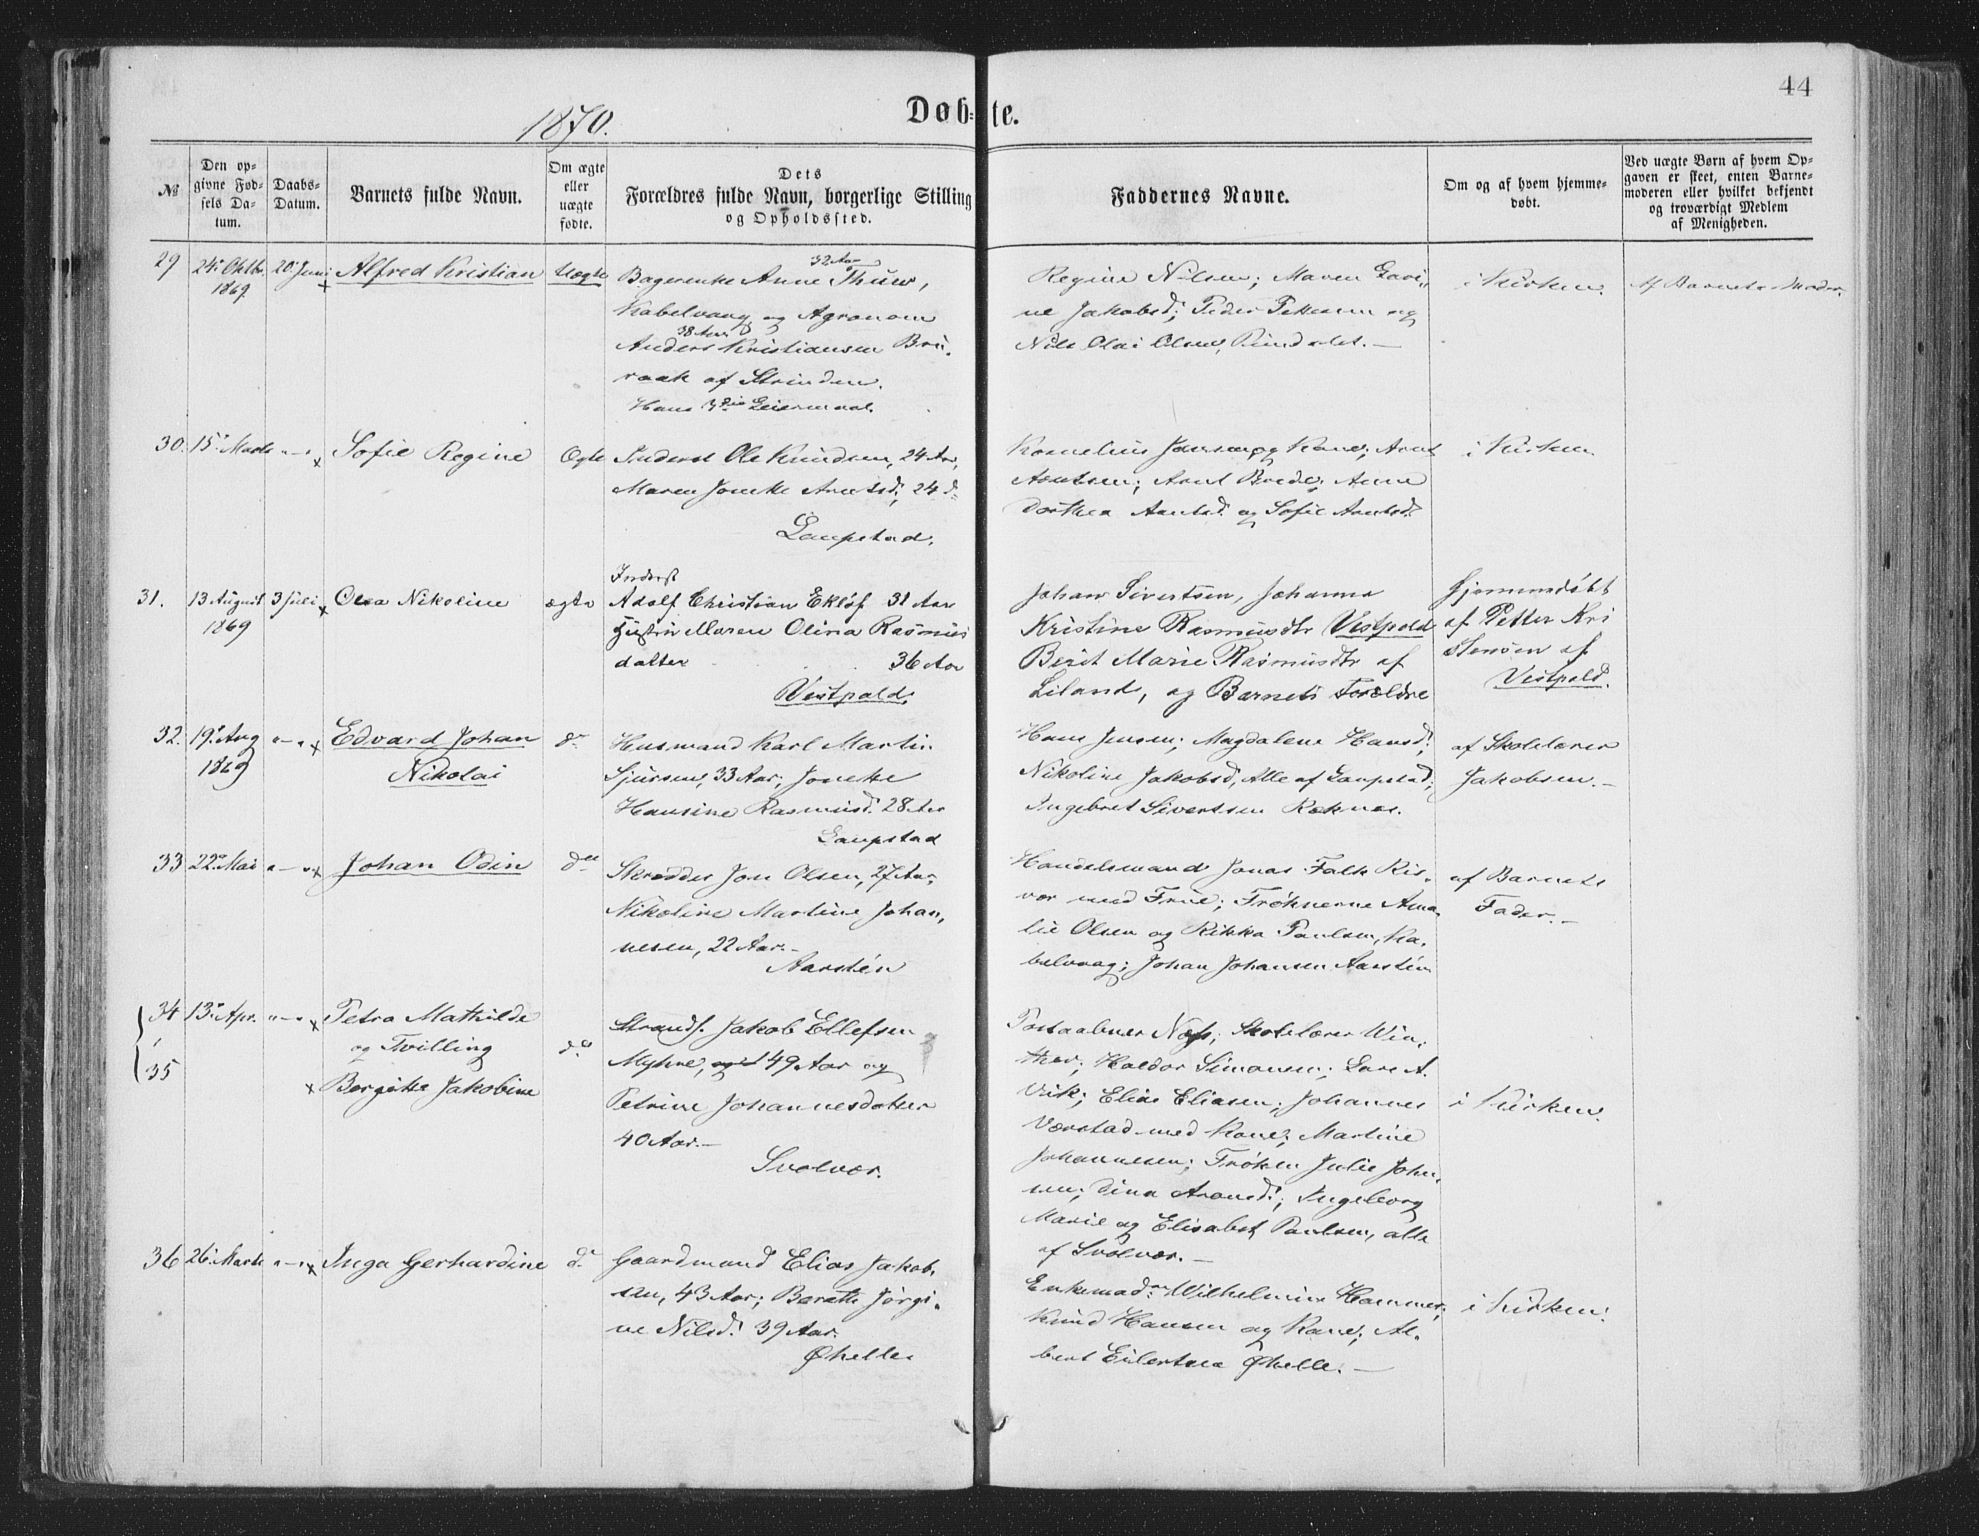 44
1870.
Døb-te.
№
Den op-
givne Fød-
sels Da-
tum.
Daabs-
Datum.
Barnets fulde Navn.
Om ægte
eller
uægte
fødte.
Dets
Forældres fulde Navn, borgerlige Stilling
og Opholdssted.
Faddernes Navne.
Om og af hvem hjemme-
døbt.
Ved uægte Børn af hvem Op-
gaven er skeet, enten Barne-
moderen eller hvilket bekjendt
og troværdigt Medlem
af Menigheden.
29 24. Oktbr. 1869 20. Juni Alfred Kristian Uægte
32 Aar
Anne Thue,
Kabelvaag og Agronom
38 Aar
Anders Kristiansen Bru-
raak af Strinden.
Hans 3die Leiermaal.
Regine Nilsen; Maren Lavi-
ne Jakobsd; Peder Pettersen og
Nils Olai Olsen,
i Kirken.
Af Barnets Moder.
30. 15. Marts "-" Sofie Regine Ægte
Inderst Ole Knudsen, 24 Aar,
Maren Jonette Arntsd; 24 d-
Laupstad.
Kornelius Jensen og Kone; Arnt
Arntsen; Arnt Brede; Anne
Dorthea Arntsd. og Sofie Arntsd.
i Kirken
31. 13 August 1869 3 Juli Olea Nikoline ægte
Inderst
Adolf Christian Eklöf 31 Aar
Hustru Maren Olina Rasmus
datter 36 Aar
Vestpold.
Johan Sivertsen, Johanna
Kristine Rasmusdtr Vestpold
Berit Marie Rasmusdtr af
Liland, og Barnets Forældre
Hjemmedøbt
af Petter Kri
stensen af
Vestpold.
32. 19. Aug 1869 "-" Edvard Johan
Nikolai
d-
Husmand Karl Martin
Sjursen, 33 Aar; Jonette
Hansine Rasmusd. 28 Aar
Laupstad
Hans Jensen; Magdalene Hansd;
Nikoline Jakobsd, Alle af Laupstad;
Ingebret Sivertsen Reknes.
af Skolelærer
Jakobsen.-
33 22. Mai "-" Johan Odin d-
Skrædder Jon Olsen, 27 Aar,
Nikoline Martine Johan-
nesen, 22 Aar.-
Aarstén
Handelsmand Jonas Falk Ris-
vær med Frue; Frøknerne Ama-
lie Olsen og Rikka Paulsen, Ka-
belvaag; Johan Johansen Aarstén
af Barnets
Fader.-
34 13. Apr. "-" Petra Mathilde
og Tvilling
35
Bergitte Jakobine
d-
Strands. Jakob Ellefsen
Myhre, 49 Aar og
Petrine Johannesdatter
40 Aar.-
Svolvær.
Postaabner Næss; Skolelærer Win-
ther; Haldor Simonsen; Lars A.
Vik; Elias Eliasen; Johannes
Værstad med Kone; Martine
Johannesen; Frøken Julie John-
sen; Dina Aronsd.; Ingeborg
Marie og Elisabet Paulsen, alle
af Svolvær.-
i Kirken.
36 26. Marts "-" Inga Gerhardine d-
Gaardmand Elias Jakob-
sen, 43 Aar; Beratte Jørgi-
ne Nilsd. 39 Aar.
Ørelle
Enkemad. Wilhelmine Hammer;
Knud Hansen og Kone; Al-
bert Eilertsen Ørelle.-
i Kirken.